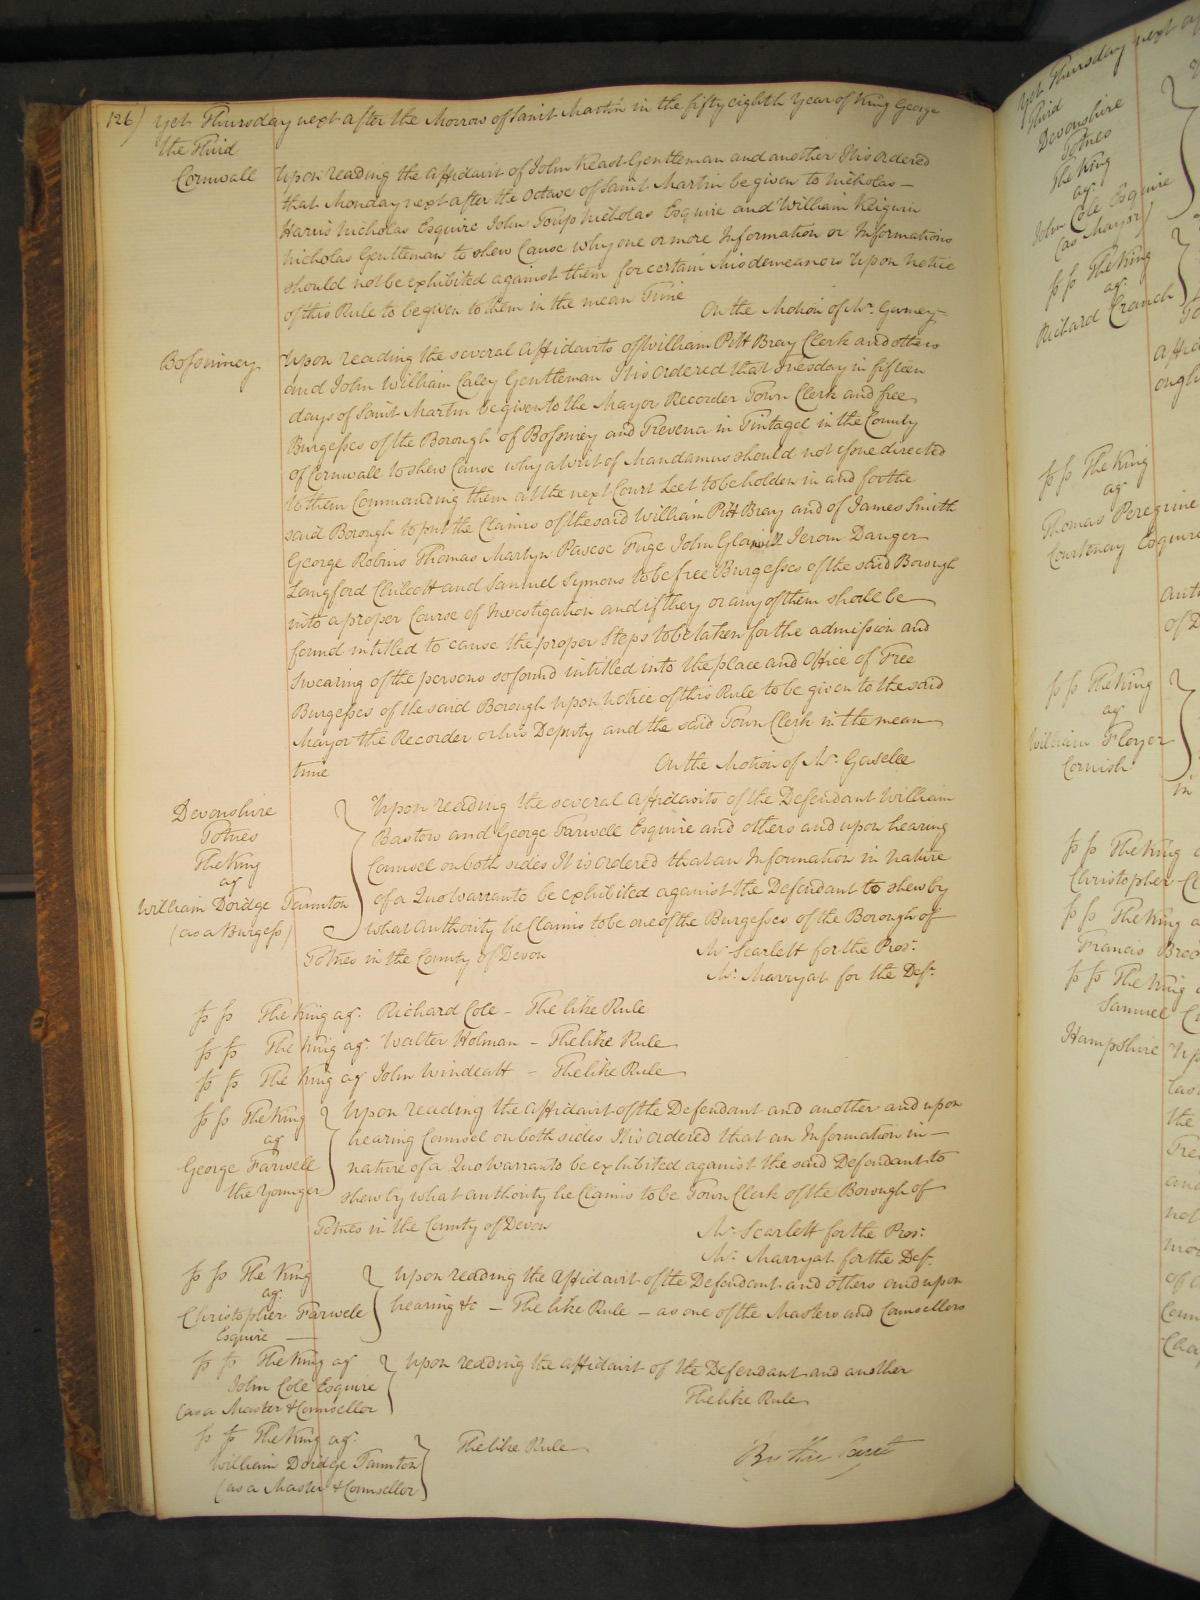 126) Yet Thursday next after the Morrow of Saint Martin in the fifty eighth Year of King George
the Third
Cornwall
Upon reading the Affidavit of John Keast Gentleman and another It is Ordered
that Monday next after the Octave of Saint Martin be given to Nicholas
Harris Nicholas Esquire John Toup Nicholas Esquire and William Keigwin
Nicholas Gentleman to shew Cause why one or more Information or Informations
should not be exhibited against them for certain Misdemeanors Upon Notice
of this Rule to be given to them in the mean Time
On the Motion of Mr. Gurney
Bossiney
Upon reading the several Affidavits of William Pitt Bray Clerk and others
and John William Caley Gentleman It is Ordered that Tuesday in fifteen
days of Saint Martin be given to the Mayor Recorder Town Clerk and free
Burgesses of the Borough of Bossiney and Trevena in Tintagel in the County
of Cornwall to shew Cause why a Writ of Mandamus should not issue directed
to them Commanding them at the next Court Leet to be holden in and for the
said Borough to put the Claims of the said William Pitt Bray and of James Smith
George Robins Thomas Martyn Pascoe Fuge John Glanvill Jerom Danger
Langford Chilcott and Samuel Symons to be free Burgesses of the said Borough
into a proper Course of Investigation and if they or any of them shall be
found intitled to cause the proper Steps to be taken for the admission and
Swearing of the persons so found intitled into the place and Office of Free
Burgesses of the said Borough Upon Notice of this Rule to be given to the said
Mayor the Recorder or his Deputy and the said Town Clerk in the mean
time
On the Motion of Mr. Gaselee
Devonshire
Totnes
The King
agt
William Doidge Taunton
(as a Burgess)
Upon reading the several Affidavits of the Defendant William
Bastow and George Farwell Esquire and others and upon hearing
Counsel on both sides It is ordered that an Information in Nature
of a Quo Warranto be exhibited against the Defendant to shew by
what Authority he Claims to be one of the Burgesses of the Borough of
Totnes in the County of Devon
Mr. Scarlett for the Pros:
Mr. Marryat for the Deft.
ss ss The King agt. Richard Cole - The like Rule
ss ss The King agt. Walter Holman - The like Rule
ss ss The King agt John Windeatt - The like Rule
ss ss The King
agt
George Farwell
the Younger
Upon reading the Affidavit of the Defendant and another and upon
hearing Counsel on both sides It is ordered that an Information in
nature of a Quo Warranto be exhibited against the said Defendant to
shew by what authority he Claims to be Town Clerk of the Borough of
Totnes in the County of Devon
Mr. Scarlett for the Pros:
Mr. Marryat for the Deft.
ss ss The King
agt.
Christopher Farwell
Esquire
Upon reading the Affidavit of the Defendant and others and upon
hearing &c - The like Rule - as one of the Masters and Counsellors
ss ss The King agt
John Cole Esquire
(as a Master & Counsellor
Upon reading the Affidavit of the Defendant and another
The like Rule
ss ss The King agt.
William Doidge Taunton
(as a Master & Counsellor)
The like Rule
By the Court
Yet Thursday next
Third
Devonshire
Totnes
The King
agt
John Cole Esquire
(as Mayor)
ss ss The King
agt
Richard Cranch
ss ss The King
agt
Thomas Peregrine
Courtenay Esquire
ss ss The King
agt
William Floyer
Cornish
in
ss ss The King
Christopher
ss ss The King
Francis
ss ss The King
Samuel
Hampshire
the